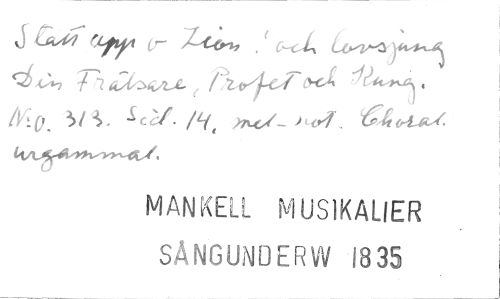 Statt upp o Zion! och lovsjung
Din Frälsare, Profet och Kung.
N:o. 313. Sid. 14, mel-not. Choral.
urgammal.
MANKELL MUSIKALIER
SÅNGUNDERW 1835